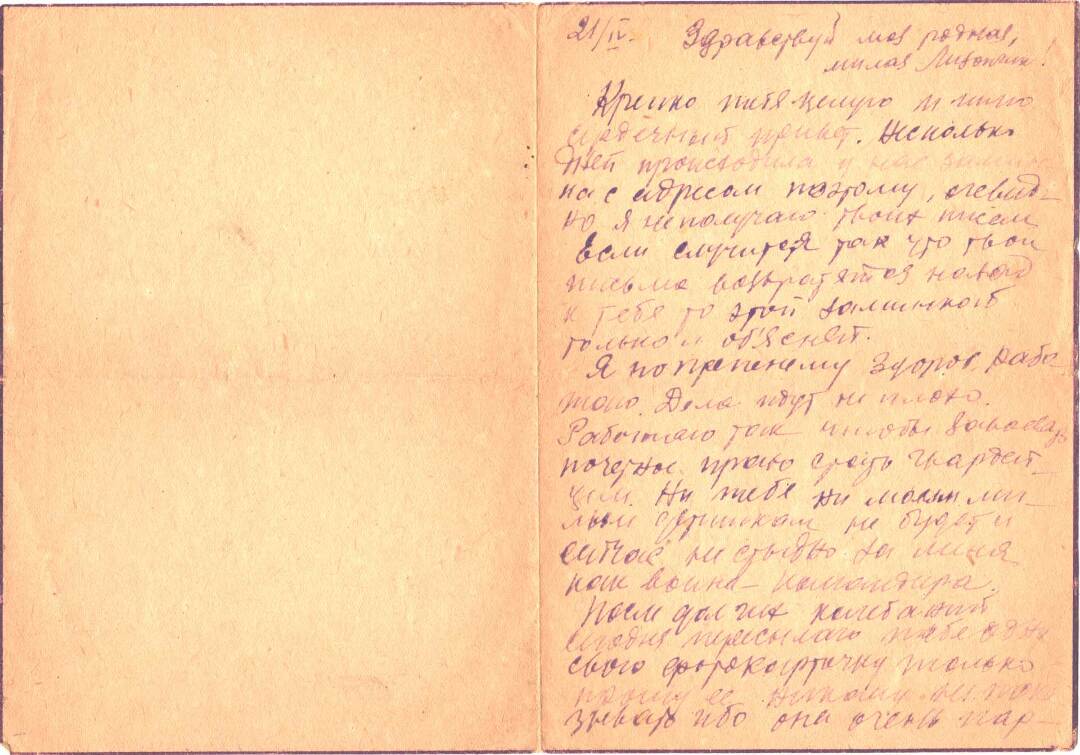 21/IV. Здравствуй моя родная,
милая Лизончик!
Крепко тебя целую и шлю
сердечный привет. Несколько
дней происходила у нас замин
ка с адресом поэтому, очевид-
но я не получаю твоих писем
Если случится так что твои
письма возвратятся назад
к тебе то этой заминкой
только и об'яснят.
Я попрежнему здоров, рабо-
таю. Дела идут не плохо.
Работаю так чтобы завоевать
почетное право стать гвардей-
цем. Ни тебе ни моим ми-
лым детишкам не будет и
сейчас не стыдно за меня
как воина-командира.
После долгих колебаний
сегодня пересылаю тебе одну
свою фотокарточку только
прошу ее никому не пока
зывать ибо она очень пар-